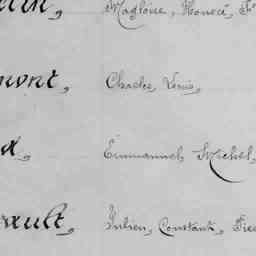 Magloire, Honoré, Fr
mont, Charles Louis,
d, Emmanuel Michel,
ault, Julien, Constant, Fre